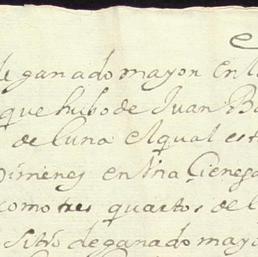 e
de ganado mayor en l
que hubo de Juan Ba
de luna el qual est
Ximenes en una Cienega
como tres quartos de l
sitio de ganado mayo